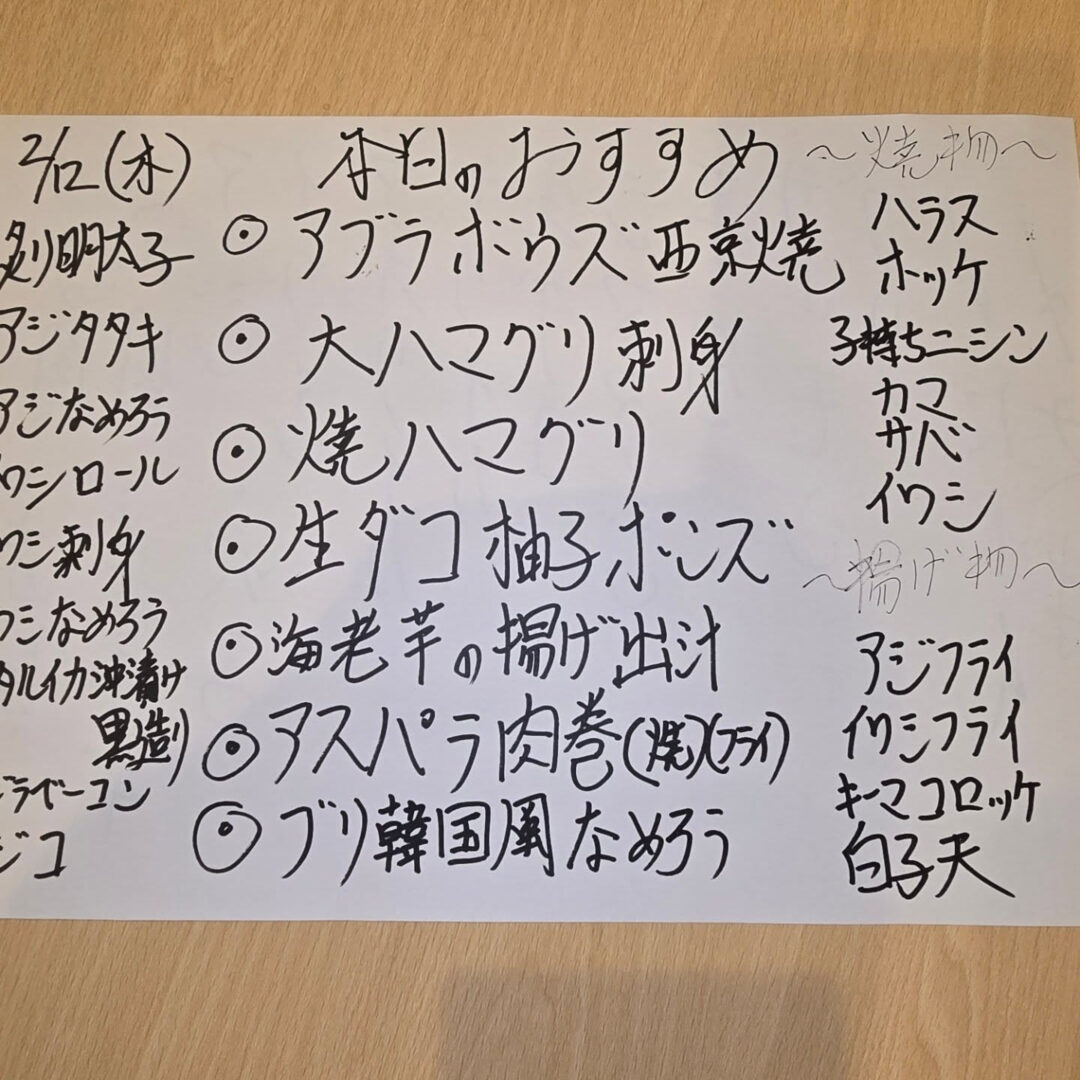 2/12(木)
炙り明太子
アジタタキ
アジなめろう
ワシロール
ワシ刺身
なめろう
タルイカ沖漬け
黒造り
ベーコン
ジコ
本日のおすすめ
◎ アブラボウズ西京焼
◎ 大ハマグリ刺身
◎ 焼ハマグリ
◎ 生ダコ柚子ポンズ
◎ 海老芋の揚げ出汁
◎ アスパラ肉巻(焼)(フライ)
◎ ブリ韓国風なめろう
〜焼物〜
ハラス
ホッケ
子持ちニシン
カマ
サバ
イワシ
〜揚げ物〜
アジフライ
イワシフライ
キーマコロッケ
白子天